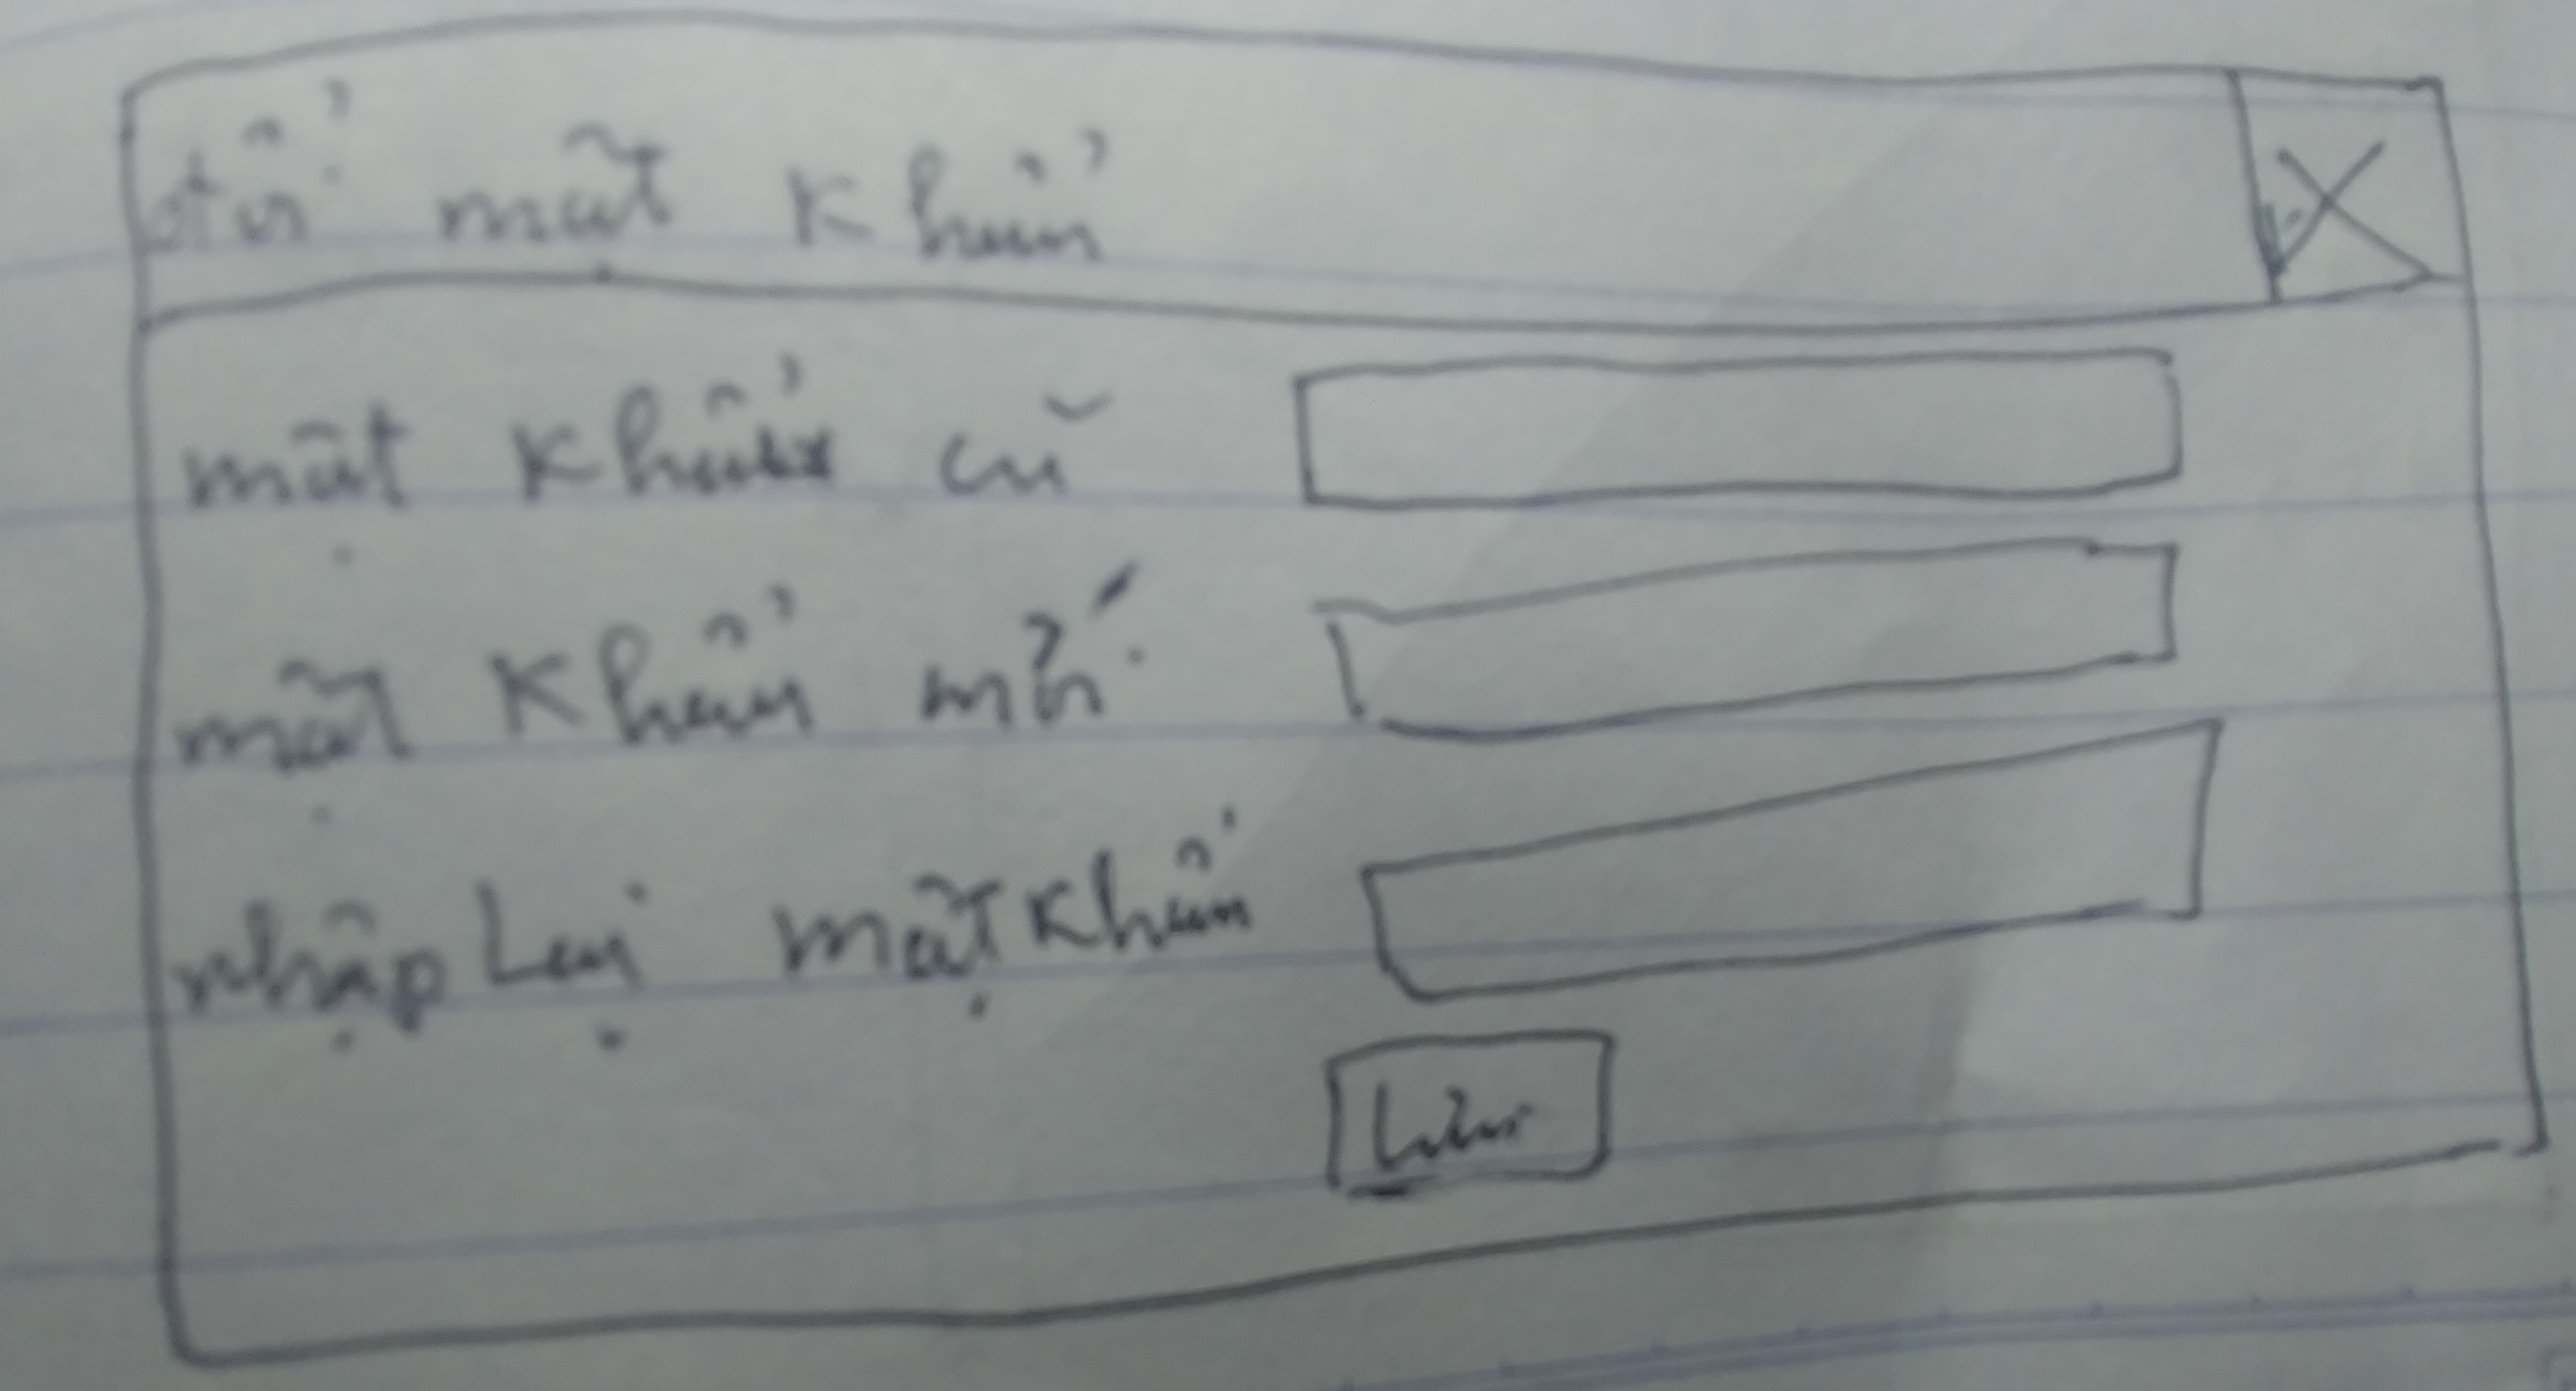 đổi mật khẩu
X
mật khẩu cũ
mật khẩu mới
nhập lại mật khẩu
Lưu